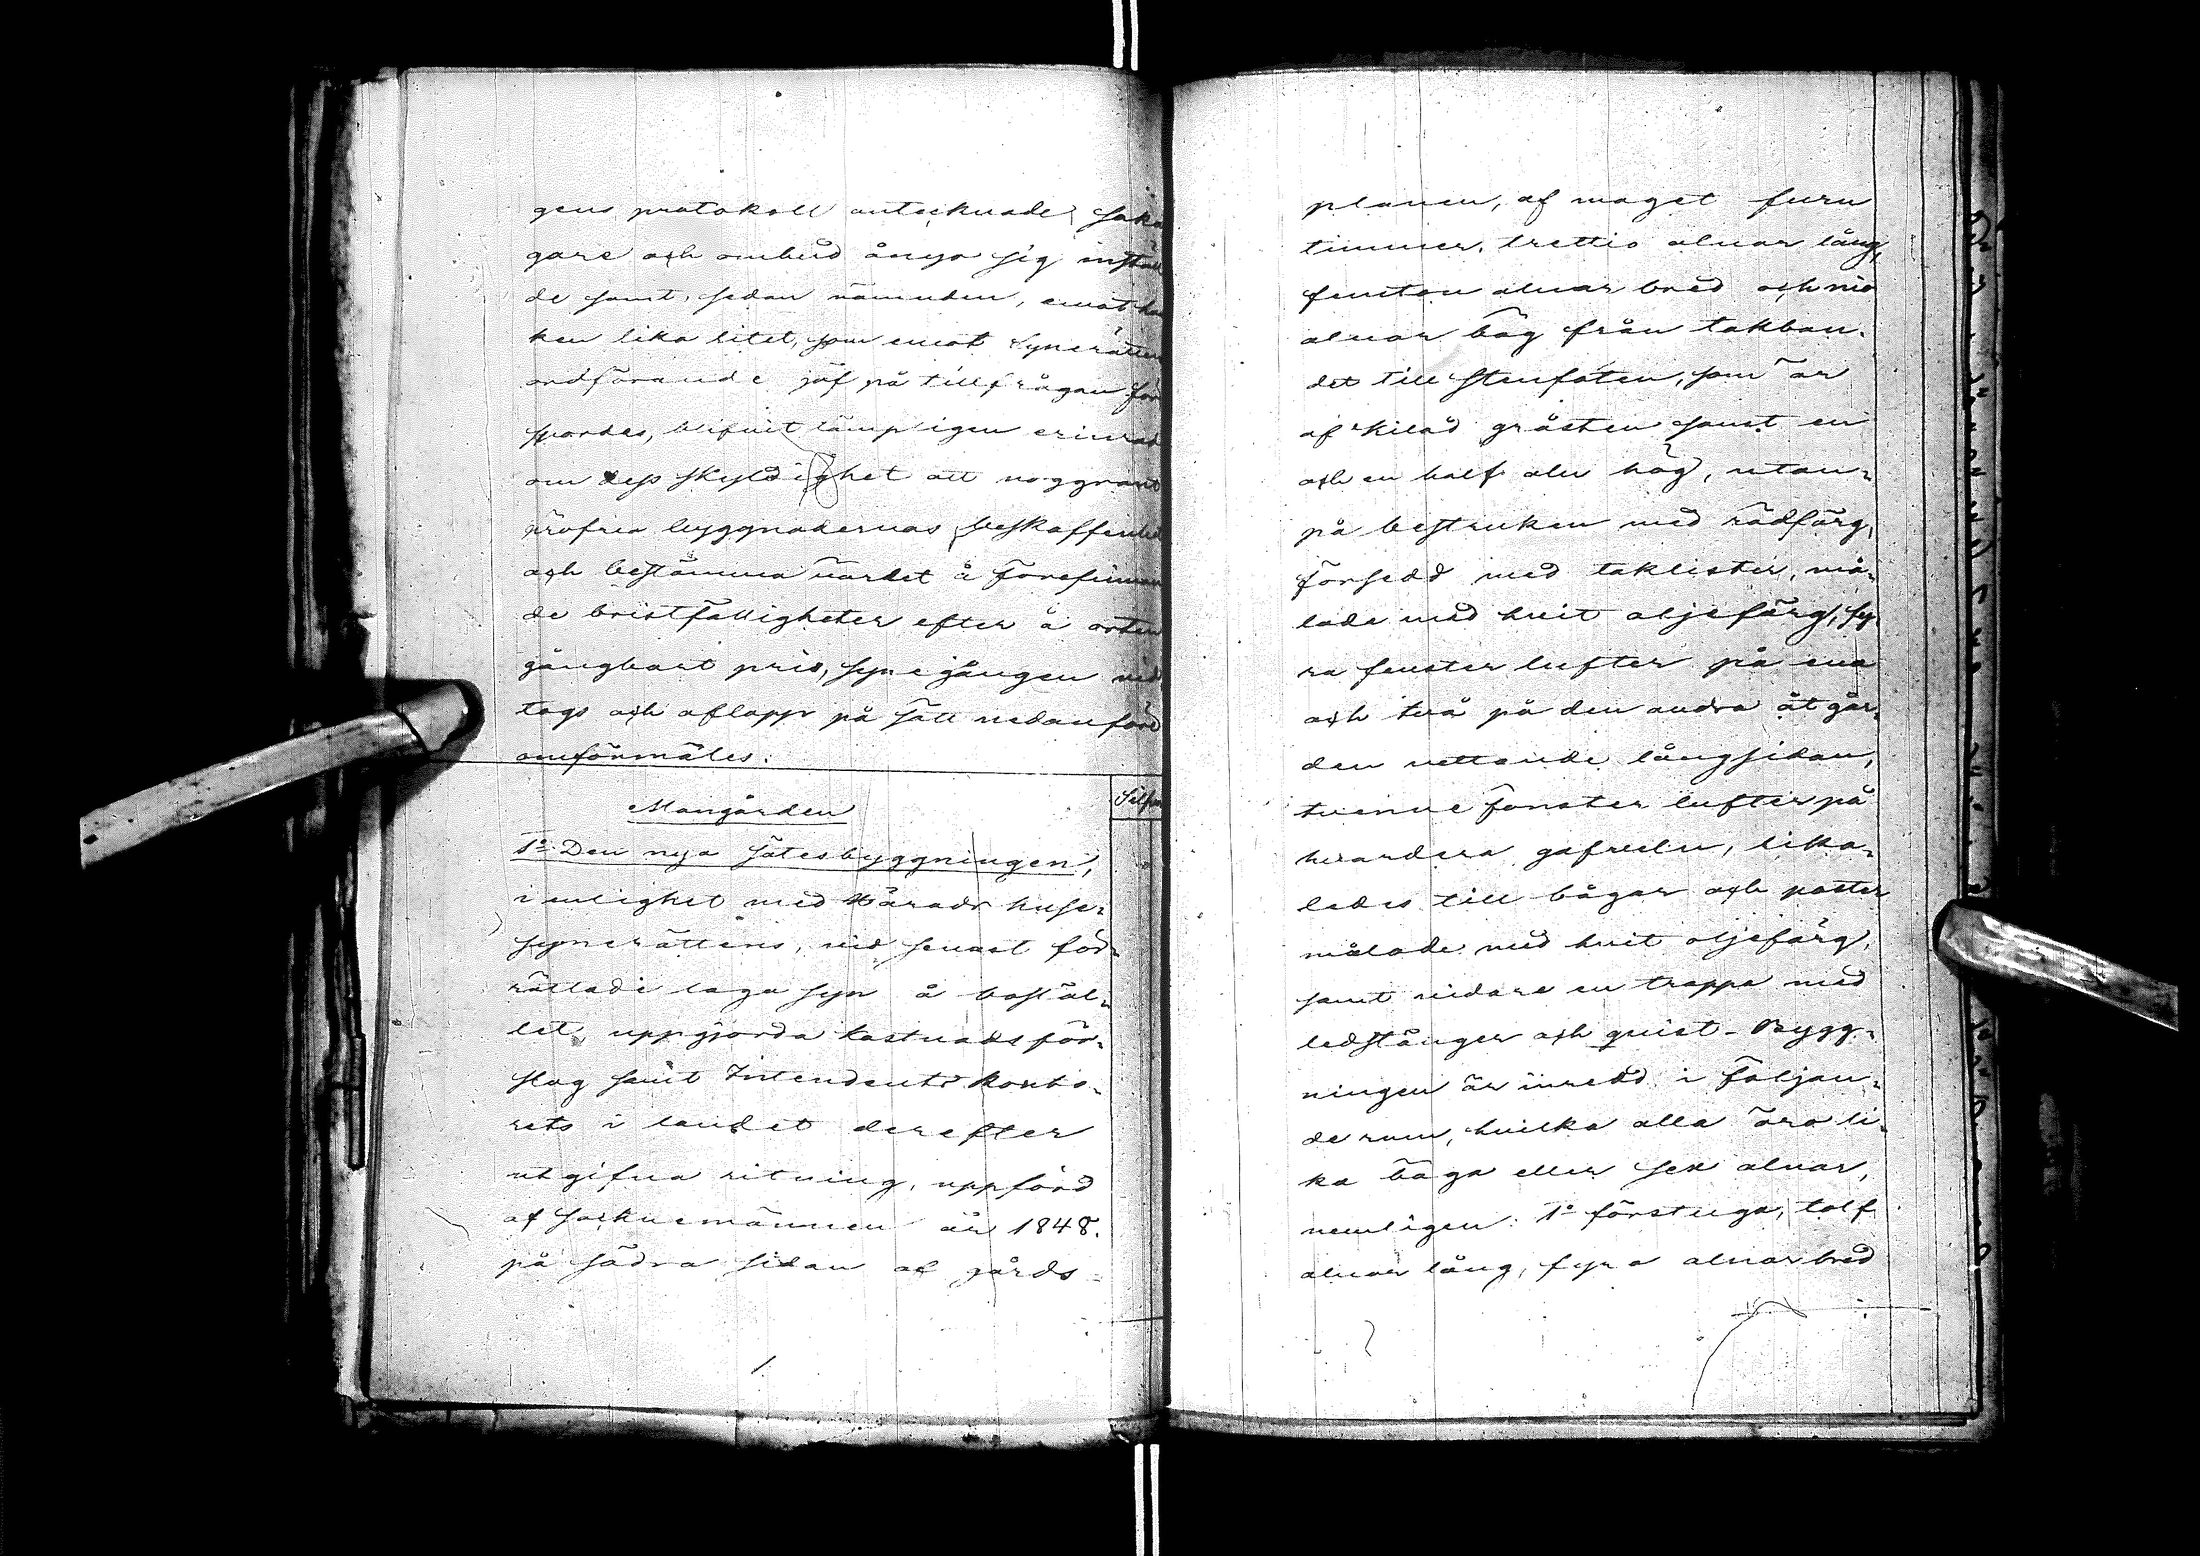 gens protokoll antecknade saka
gare och ombud ånyo sig instäl
de samt, sedan nämnden, emot hvil
ken lika litet, som emot Synerätten
ordförande jäf på tillfrågan för
spordes, blifvit lämpligen erinrad
om dess skyldighet att noggrant
pröfva byggnadernas beskaffenhet
och bestämma värdet å förefinnan
de bristfälligheter efter å orten
gångbart pris, synegången vid
togs och aflopp på sätt nedanföre
omförmäles.
Mangården
Silfver
1o Den nya sätesbyggningen,
i enlighet med Härads huse-
synerättens, vid senast för-
rättade laga syn å bostäl-
let, uppgjorda kostnadsför-
slag samt Intendents konto-
rets i landet derefter
utgifna ritning, uppförd
af socknemännen år 1848.
på södra sidan af gårds-
planen, af moget furu
timmer, trettio alnar lång,
femton alnar bred och nio
alnar hög från takban-
det till stenfoten, som är
af kilad gråsten samt en
och en half aln hög, utan-
på bestruken med rödfärg,
försedd med taklister, må-
lade med hvit oljefärg, fy-
ra fenster lufter på ena
och två på den andra åt går-
den vettande långsidan,
tvenne fönster lufter på
hvardera gafveln, lika-
ledes till bågar och poster
målade med hvit oljefärg,
samt vidare en trappa med
ledstänger och qvist. Bygg-
ningen är inredd i följan-
de rum, hvilka alla äro li-
ka höga eller sex alnar,
nemligen: 1o förstuga, tolf
alnar lång, fyra alnar bred